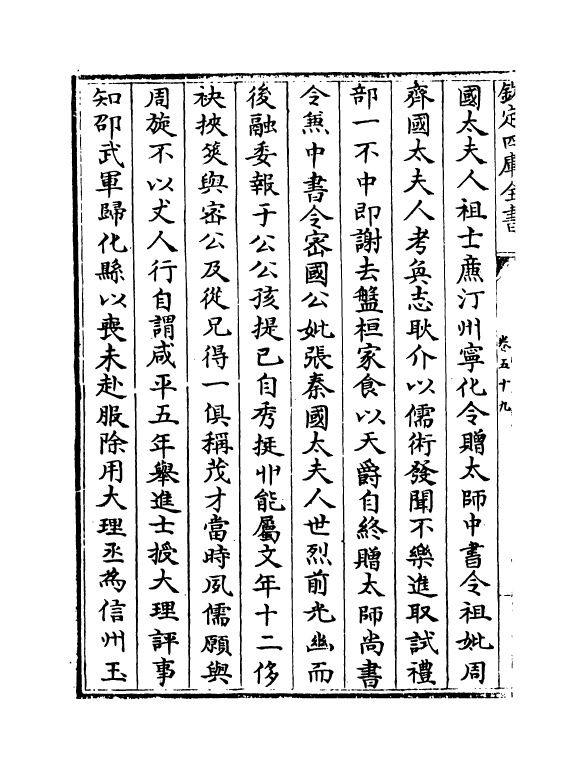 欽定四庫全書
卷五十九
國太夫人祖士廉汀州寧化令贈太師中書令祖妣周
齊國太夫人考奐志耿介以儒術發聞不樂進取試禮
部一不中即謝去盤桓家食以天爵自終贈太師尚書
令兼中書令密國公妣張秦國太夫人世烈前光幽而
後融委報于公公孩提已自秀挺丱能屬文年十二侈
袂挾筴與密公及從兄得一俱稱茂才當時夙儒願與
周旋不以丈人行自謂咸平五年舉進士授大理評事
知邵武軍歸化縣以喪未赴服除用大理丞為信州玉